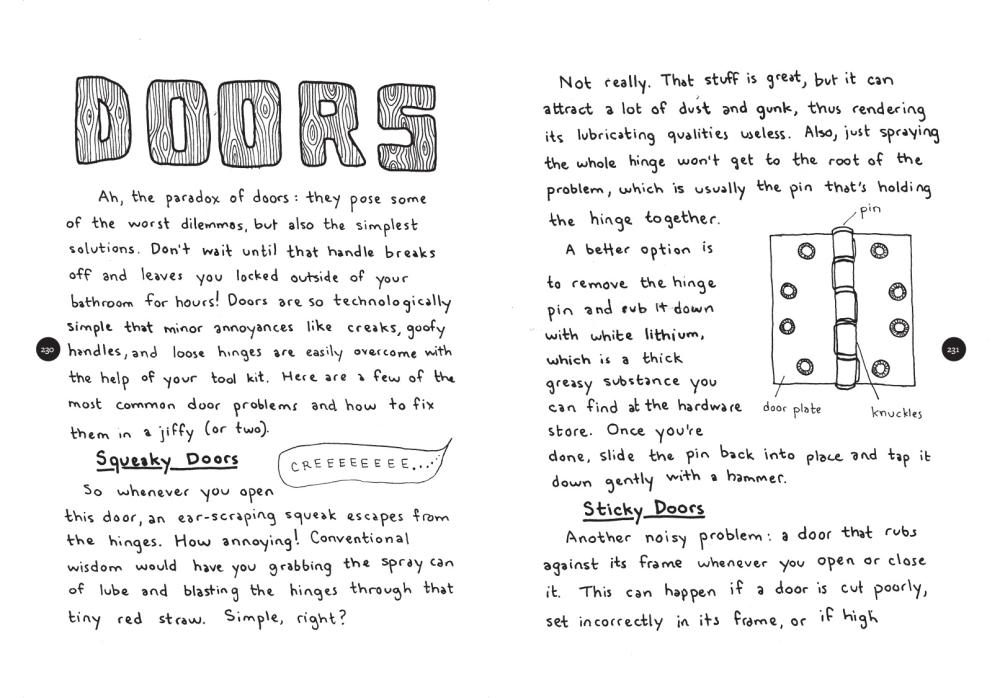 DOORS
Ah, the paradox of doors: they pose some
of the worst dilemmas, but also the simplest
solutions. Don't wait until that handle breaks
off and leaves you locked outside of your
bathroom for hours! Doors are so technologically
simple that minor annoyances like creaks, goofy
handles, and loose hinges are easily overcome with
the help of your tool kit. Here are a few of the
most common door problems and how to fix
them in a jiffy (or two).
230
Squeaky Doors
CREEEEEEEE....
So whenever you open
this door, an ear-scraping squeak escapes from
the hinges. How annoying! Conventional
wisdom would have you grabbing the spray can
of lube and blasting the hinges through that
tiny red straw. Simple, right?
Not really. That stuff is great, but it can
attract a lot of dust and gunk, thus rendering
its lubricating qualities useless. Also, just spraying
the whole hinge won't get to the root of the
problem, which is usually the pin that's holding
the hinge together.
A better option is
to remove the hinge
pin and rub it down
with white lithium,
which is a thick
greasy substance you
can find at the hardware
store. Once you're
done, slide the pin back into place and tap it
down gently with a hammer.
pin
door plate
knuckles
231
Sticky Doors
Another noisy problem: a door that rubs
against its frame whenever you open or close
it. This can happen if a door is cut poorly,
set incorrectly in its frame, or if high